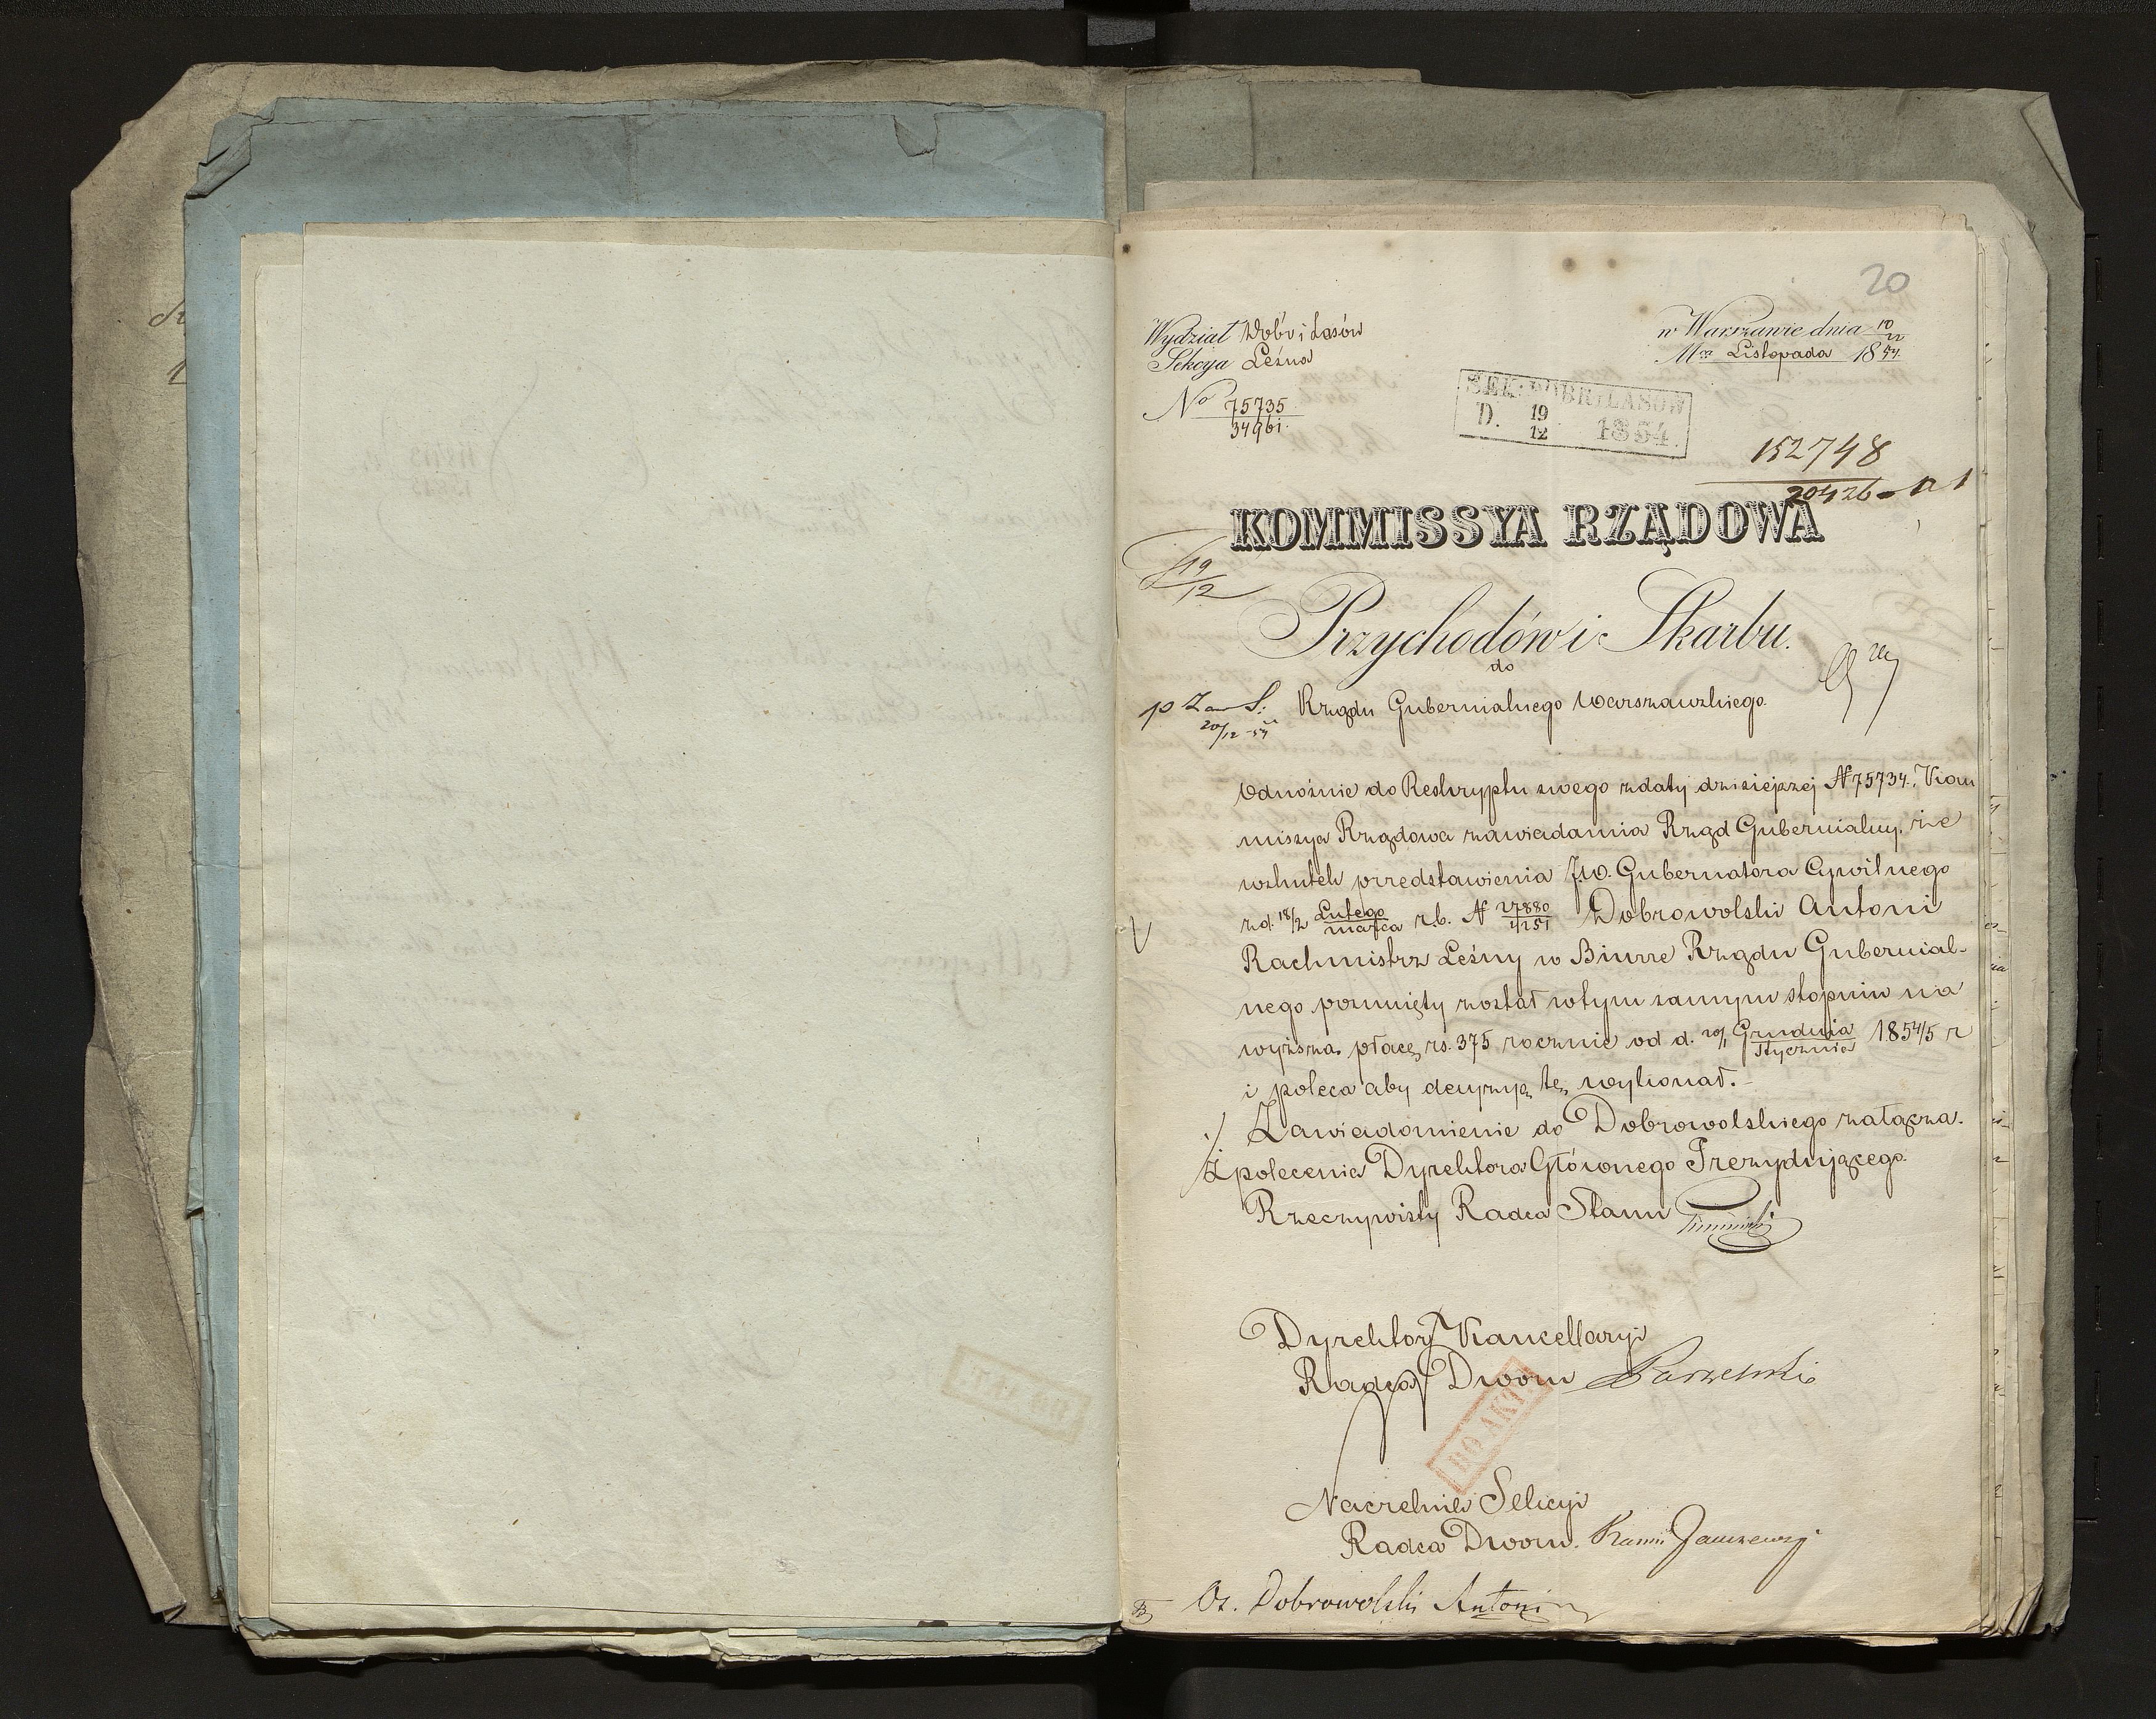 20
Wydział Dóbr i Lasów
Sekcya Leśna
No 75735
34961.
w Warszawie dnia 10/22
Mca Listopada 1854.
SEK: DOBR i LASÓW
D. 19/12 1854.
152748
20426
KOMMISSYA RZĄDOWA
19/12
Przychodów i Skarbu.
do
Rządu Gubernialnego Warszawskiego.
20/12 54
Odnośnie do Reskryptu swego z daty dzisiejszej N 75734. Kom
missya Rządowa zawiadamia Rząd Gubernialny, że
wskutek przedstawienia J.W. Gubernatora Cywilnego
z d. 18/2 Lutego/marca r.b. N 27880 Dobrowolski Antoni
Rachmistrz Leśny w Biurze Rządu Gubernial-
nego posunięty został w tym samym stopniu na
wyższą płacę rs. 375 rocznie od d. 20/1 Grudnia/Stycznia 1854/5 r
i poleca aby decyzyę tę wykonał.-
./. Zawiadomienie do Dobrowolskiego załącza.
Z polecenia Dyrektora Głównego Prezydującego
Rzeczywisty Radca Stanu
Dyrektor Kancellaryi
Radca Dworu
DO AKT
Naczelnik Sekcyi
Radca Dworu.
Dobrowolski Antoni